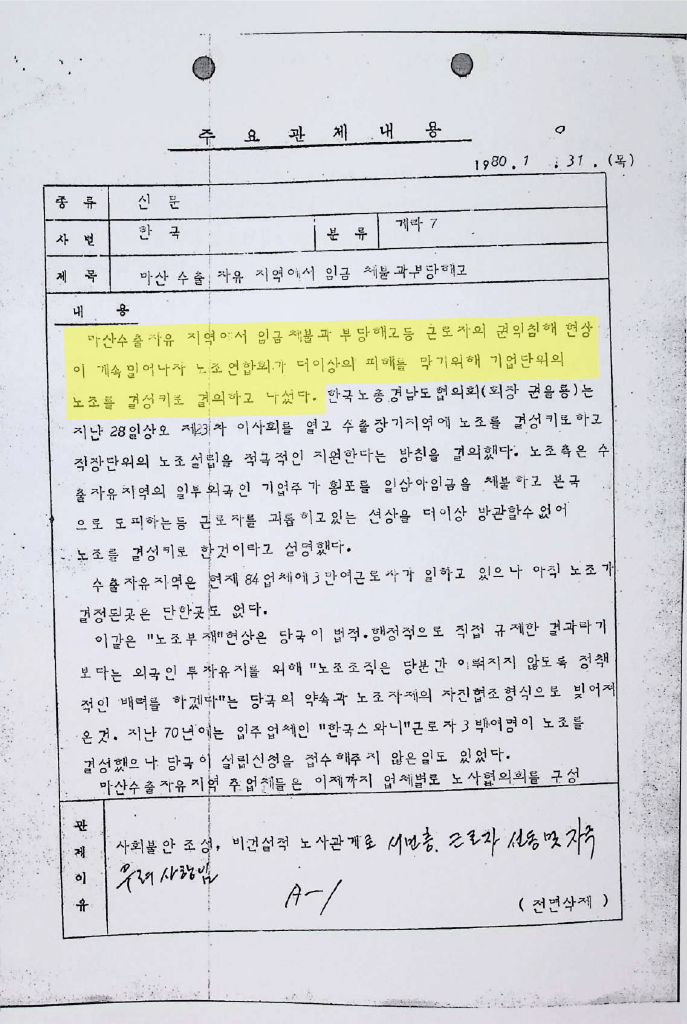 주요관제내용
1980. 1. 31. (목)
종류 신문
사별 한국 분류 계마 7
제목 마산 수출 자유 지역에서 임금 체불과부당해고
내용
마산수출자유 지역에서 임금체불과 부당해고등 근로자의 권익침해 현상
이 계속 일어나자 노조연합회가 더이상의 피해를 막기위해 기업단위의
노조를 결성키로 결의하고 나섰다. 한국노총경남도협의회(회장 권을룡)는
지난 28일상오 제23차 이사회를 열고 수출장기지역에 노조를 결성키로하고
직장단위의 노조설립을 적극적인 지원한다는 방침을 결의했다. 노조측은 수
출자유지역의 일부외국인 기업주가 횡포를 일삼아임금을 체불하고 본국
으로 도피하는등 근로자를 괴롭히고있는 션상을 더이상 방관할수없어
노조를 결성키로 한것이라고 설명했다.
수출자유지역은 현재 84업체에 3만여근로자가 일하고 있으나 아직 노조가
결정된곳은 단한곳도 없다.
이같은 "노조부재"현상은 당국이 법적.행정적으로 직접 규제한 결과라기
보다는 외국인 투자유지를 위해 "노조조직은 당분간 이뤄지지 않도록 정책
적인 배려를 하겠다"는 당국의 약속과 노조자체의 자진협조형식으로 빚어져
온것. 지난 70년에는 입주업체인 "한국스와니"근로자 3백여명이 노조를
결성했으나 당국이 설립신청을 접수해주지 않은일도 있었다.
마산수출자유지역 주업체들은 이제까지 업체별로 노사협의회를 구성
관제이유
사회불안 조성, 비건설적 노사관계로 서민층, 근로자 선동 및 자극
우려 사항임
A-1
(전면삭제)